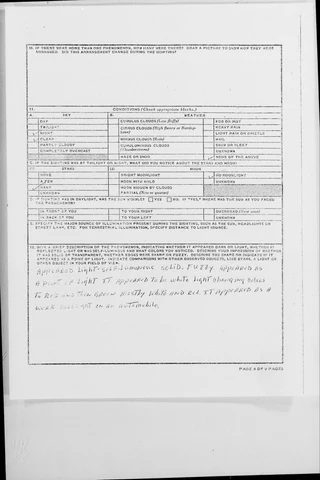 13. IF THERE WERE MORE THAN ONE PHENOMENON, HOW MANY WERE THERE? DRAW A PICTURE TO SHOW HOW THEY WERE
ARRANGED. DID THIS ARRANGEMENT CHANGE DURING THE SIGHTING?
14. CONDITIONS (Check appropriate blocks.)
A. SKY B. WEATHER
DAY CUMULUS CLOUDS (Low fluffy) FOG OR MIST
TWILIGHT CIRRUS CLOUDS HEAVY RAIN
NIGHT LIGHT RAIN OR DRIZZLE
CLEAR NIMBUS CLOUDS HAIL
PARTLY CLOUDY CUMULONIMBUS CLOUDS SNOW OR SLEET
COMPLETELY OVERCAST (Thunderstorms) UNKNOWN
HAZE OR SMOG NONE OF THE ABOVE
IF THE SIGHTING WAS AT TWILIGHT OR NIGHT, WHAT DID YOU NOTICE ABOUT THE STARS AND MOON?
STARS MOON
NONE BRIGHT MOONLIGHT NO MOONLIGHT
A FEW MOON WITH HALO UNKNOWN
MANY MOON HIDDEN BY CLOUDS
UNKNOWN PARTIAL
IF SIGHTING WAS IN DAYLIGHT, WAS THE SUN VISIBLE? YES NO. IF "YES," WHERE WAS THE SUN AS YOU FACED
THE PHENOMENON?
IN FRONT OF YOU TO YOUR RIGHT OVERHEAD
IN BACK OF YOU TO YOUR LEFT UNKNOWN
SPECIFY THE MAJOR SOURCE OF ILLUMINATION PRESENT DURING THE SIGHTING, SUCH AS THE SUN, HEADLIGHTS OR
STREET LAMP, ETC. FOR TERRESTRIAL ILLUMINATION, SPECIFY DISTANCE TO LIGHT SOURCE.
GIVE A BRIEF DESCRIPTION OF THE PHENOMENON, INDICATING WHETHER IT APPEARED DARK OR LIGHT, WHETHER IT
REFLECTED LIGHT OR WAS SELF-LUMINOUS AND WHAT COLORS YOU NOTICED. DESCRIBE YOUR IMPRESSION OF WHETHER
IT WAS SOLID OR TRANSPARENT, WHETHER EDGES WERE SHARP OR FUZZY. DESCRIBE THE SHAPE OR INDICATE IF
IT APPEARED AS A POINT OF LIGHT. INDICATE COMPARISONS WITH OTHER OBSERVED OBJECTS, LIKE STARS, A LIGHT OR
OTHER OBJECT IN YOUR FIELD OF VIEW.
Appeared light self-luminous solid. Fuzzy appeared as
a point of light It appeared to be white light changing colors
to red and then green mostly white and red. It appeared as a
light on an automobile.
PAGE 4 OF 6 PAGES